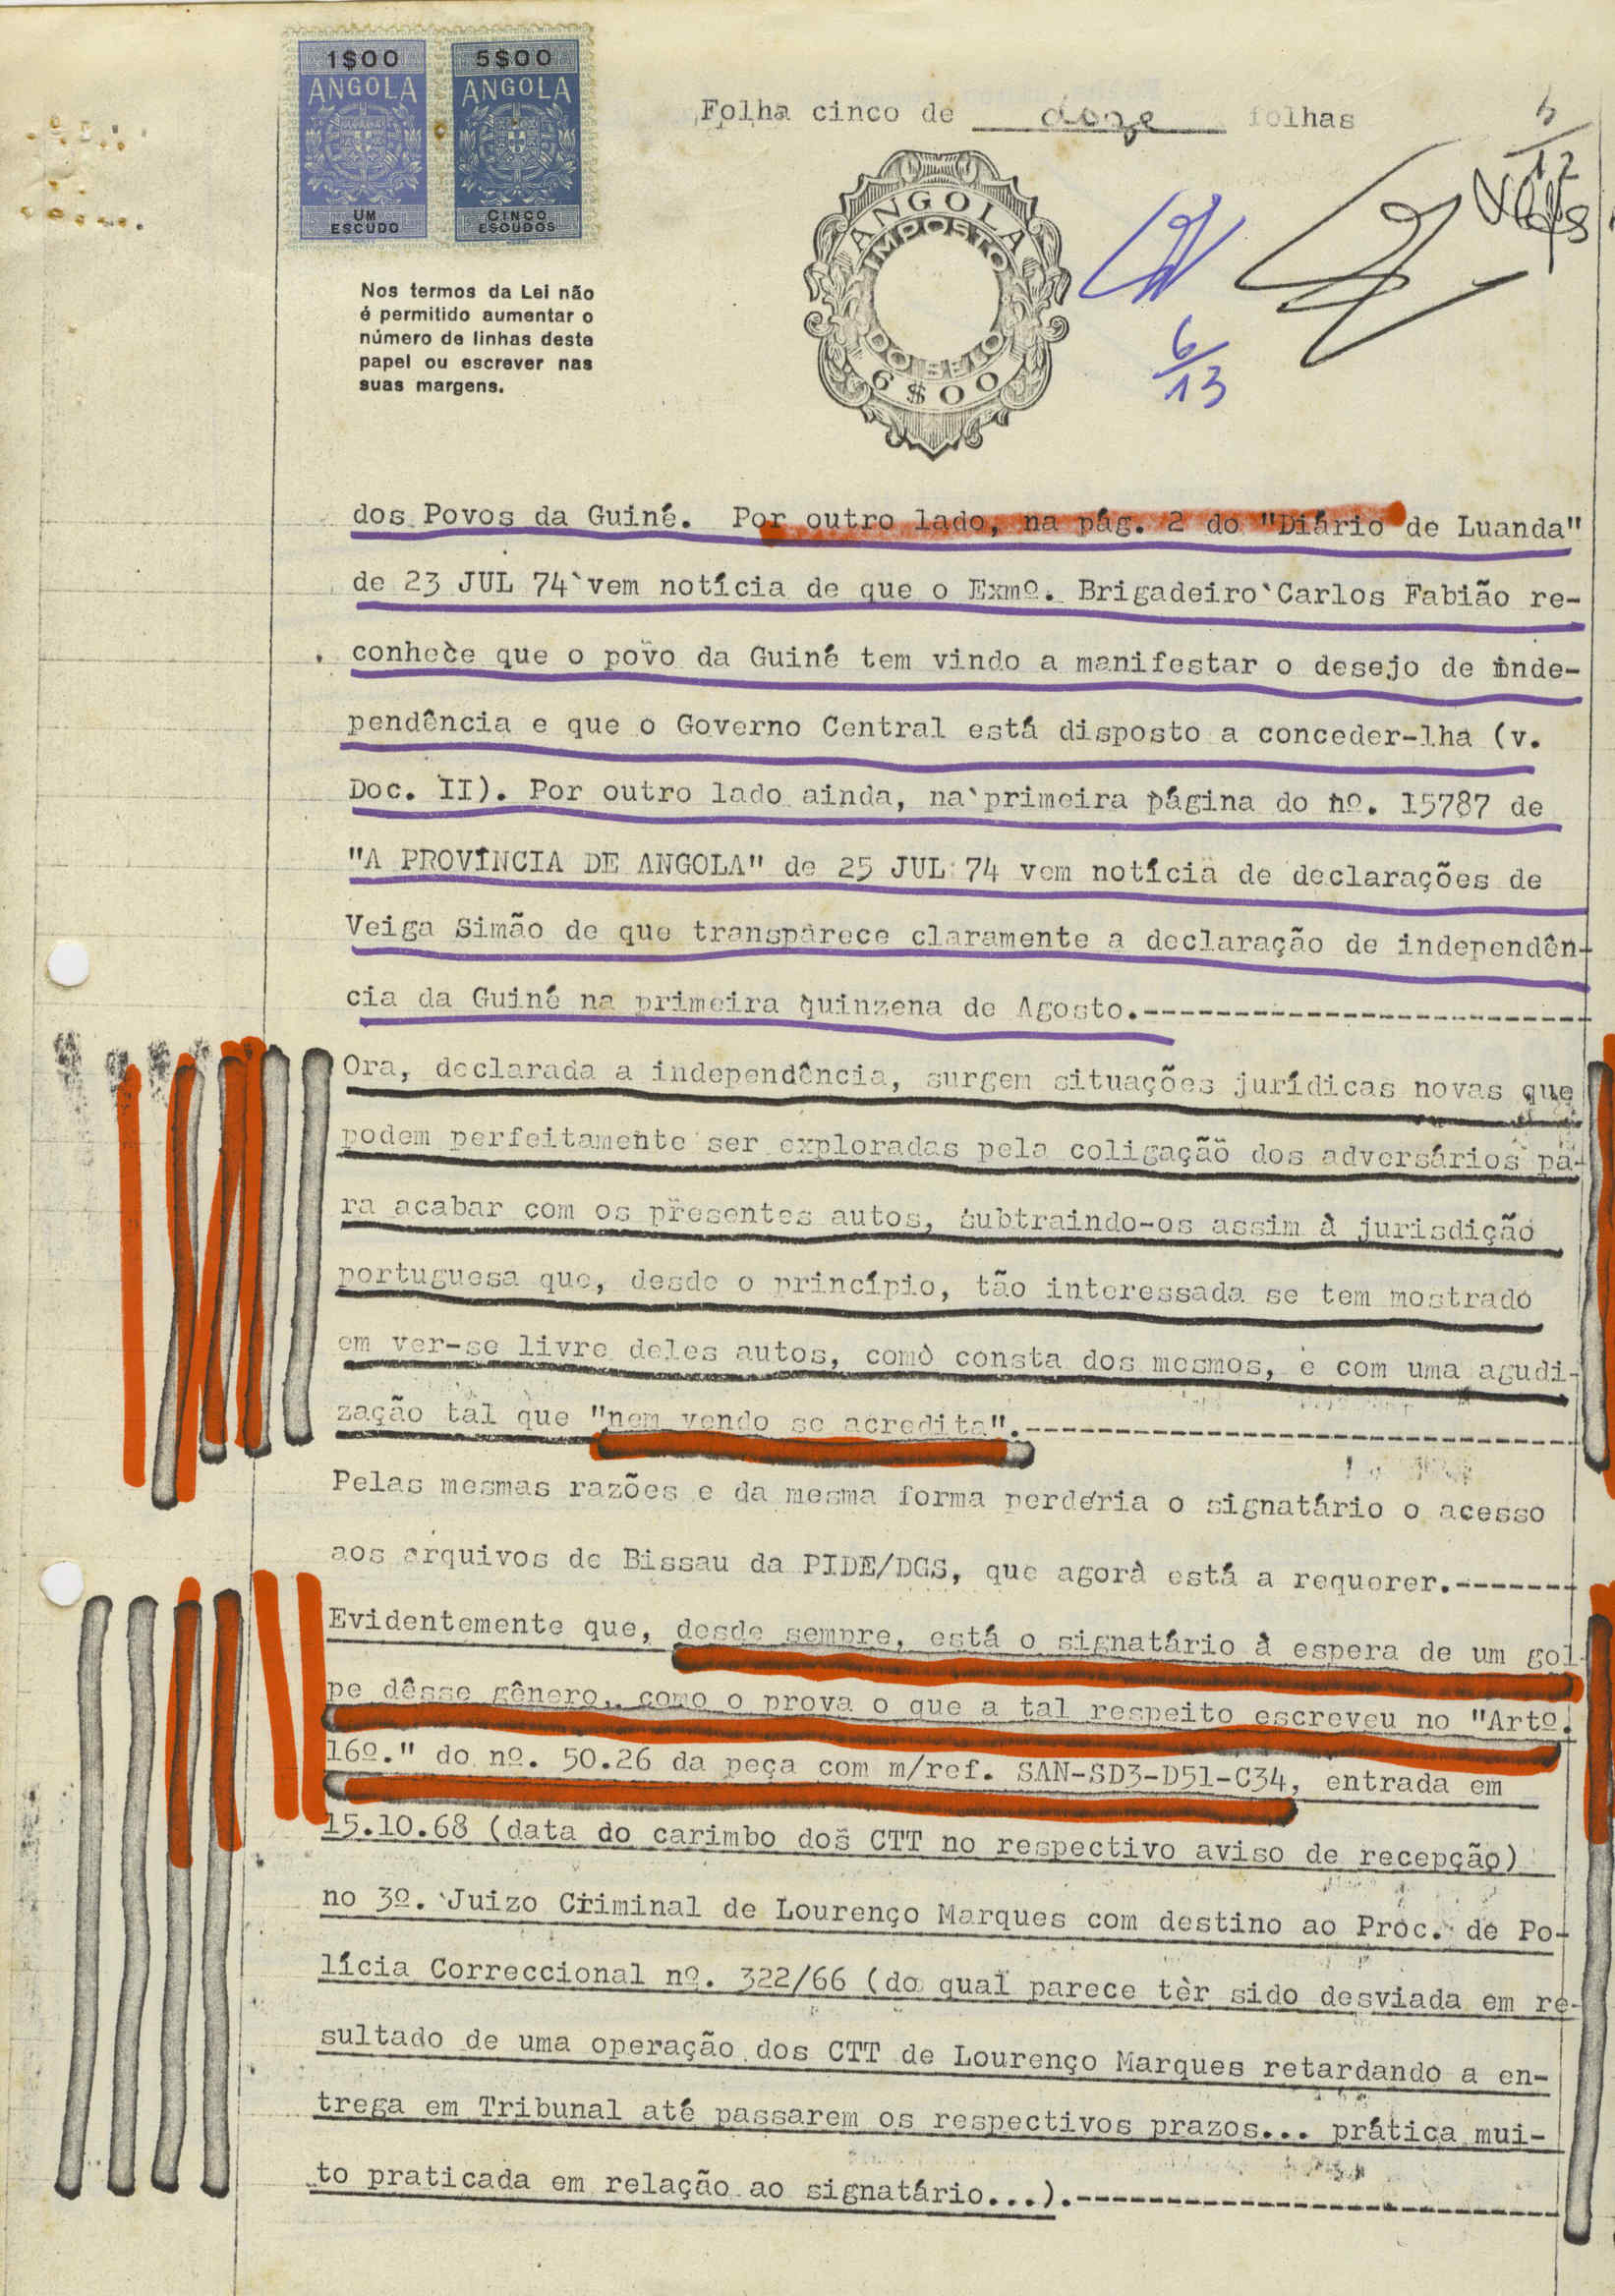 1$00
ANGOLA
UM
ESCUDO
5$00
ANGOLA
CINCO
ESCUDOS
Folha cinco de doze folhas
5/12
ANGOLA
IMPOSTO
DO SELO
6$00
6/13
Nos termos da Lei não
é permitido aumentar o
número de linhas deste
papel ou escrever nas
suas margens.
dos Povos da Guiné. Por outro lado, na pág. 2 do "Diário de Luanda"
de 23 JUL 74 vem notícia de que o Exmº. Brigadeiro Carlos Fabião re-
conhece que o povo da Guiné tem vindo a manifestar o desejo de inde-
pendência e que o Governo Central está disposto a conceder-lha (v.
Doc. II). Por outro lado ainda, na primeira página do nº. 15787 de
"A PROVÍNCIA DE ANGOLA" de 25 JUL 74 vem notícia de declarações de
Veiga Simão de que transparece claramente a declaração de independên-
cia da Guiné na primeira quinzena de Agosto.-------------------------
Ora, declarada a independência, surgem situações jurídicas novas que
podem perfeitamente ser exploradas pela coligação dos adversários pa-
ra acabar com os presentes autos, subtraindo-os assim à jurisdição
portuguesa que, desde o princípio, tão interessada se tem mostrado
em ver-se livre deles autos, como consta dos mesmos, e com uma agudi-
zação tal que "nem vendo se acredita".-------------------------------
Pelas mesmas razões e da mesma forma perderia o signatário o acesso
aos arquivos de Bissau da PIDE/DGS, que agora está a requerer.-------
Evidentemente que, desde sempre, está o signatário à espera de um gol-
pe dêsse gênero, como o prova o que a tal respeito escreveu no "Artº.
16º." do nº. 50.26 da peça com m/ref. SAN-SD3-D51-C34, entrada em
15.10.68 (data do carimbo dos CTT no respectivo aviso de recepção)
no 3º. Juizo Criminal de Lourenço Marques com destino ao Proc. de Po-
lícia Correccional nº. 322/66 (do qual parece ter sido desviada em re-
sultado de uma operação dos CTT de Lourenço Marques retardando a en-
trega em Tribunal até passarem os respectivos prazos... prática mui-
to praticada em relação ao signatário...).---------------------------